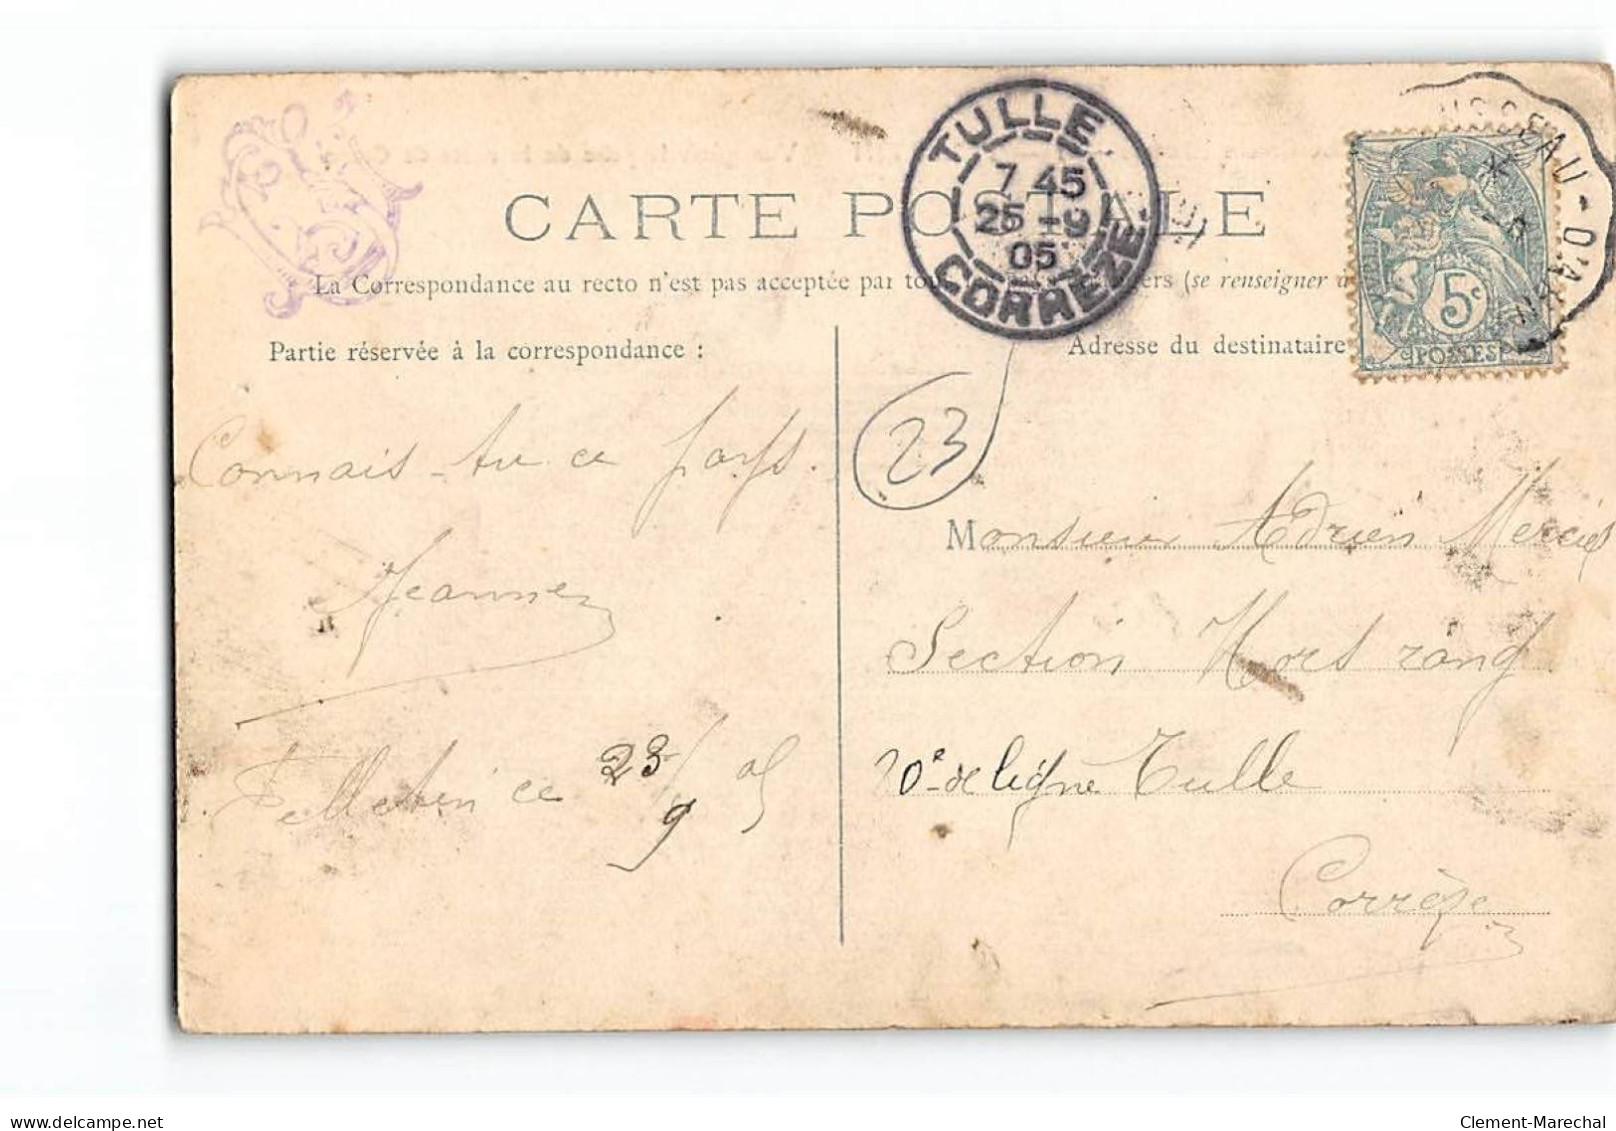 TULLE
7 45
25 -9
05
CORRÈZE
USSEAU-D'A
5c
POSTES
CARTE POSTALE
La Correspondance au recto n'est pas acceptée par tous ers (se renseigner à
Partie réservée à la correspondance :
Adresse du destinataire
Connais-tu ce pays.
Jeanne
Felletin ce 23/9 05
23
Monsieur Adrien Mercié
Section Hors rang
20e de ligne Tulle
Corrèze
delcampe.net
Clement-Marechal